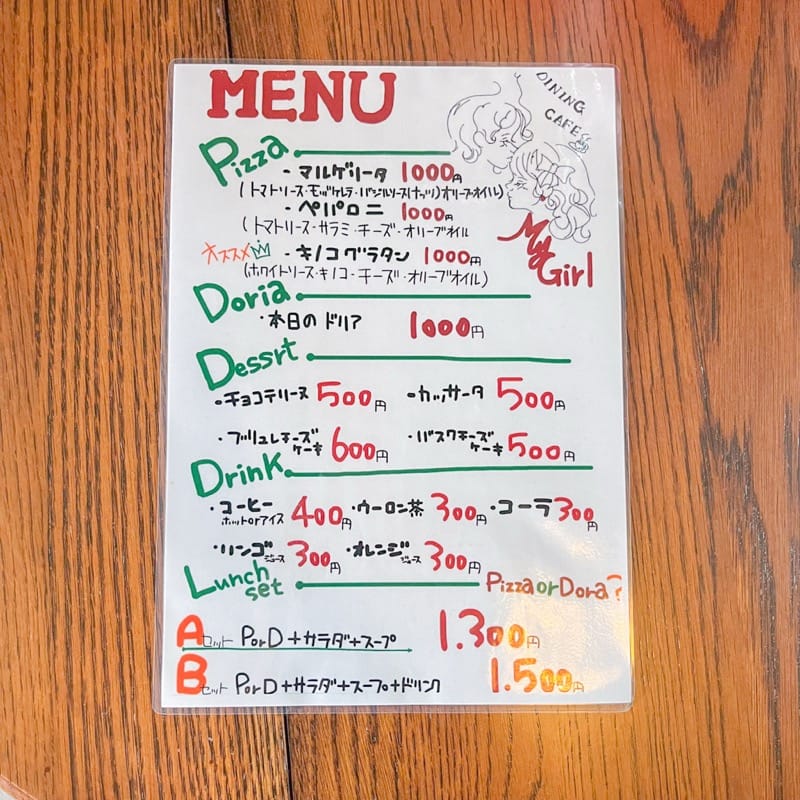 MENU
DINING
CAFE
My
Girl
Pizza
・マルゲリータ 1000円
(トマトソース・モッツァレラ・バジルソース(ナッツ)オリーブオイル)
・ペパロニ 1000円
(トマトソース・サラミ・チーズ・オリーブオイル
オススメ ・キノコグラタン 1000円
(ホワイトソース・キノコ・チーズ・オリーブオイル)
Doria
・本日のドリア 1000円
Dessrt
・チョコテリーヌ 500円 ・カッサータ 500円
・ブリュレチーズケーキ 600円 ・バスクチーズケーキ 500円
Drink
・コーヒー ホットorアイス 400円 ・ウーロン茶 300円 ・コーラ 300円
・リンゴジュース 300円 ・オレンジジュース 300円
Lunch set Pizza or Doria?
Aセット PorD+サラダ+スープ 1.300円
Bセット PorD+サラダ+スープ+ドリンク 1.500円